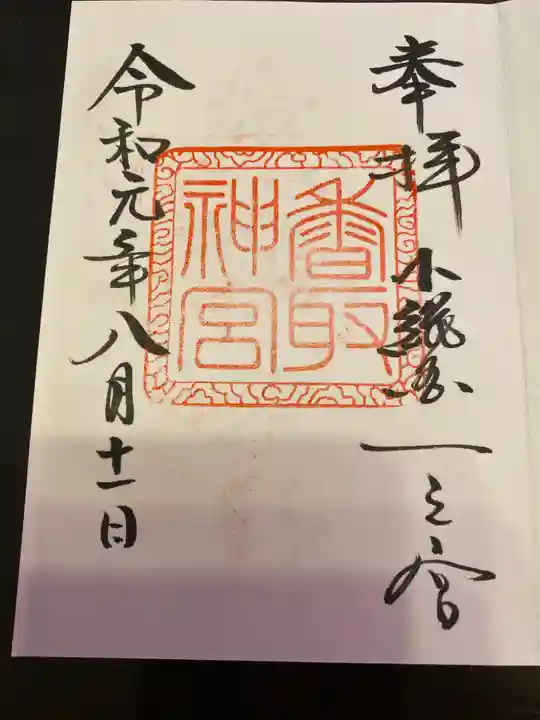 奉拝 下総国一之宮
香取
神宮
令和元年八月十一日